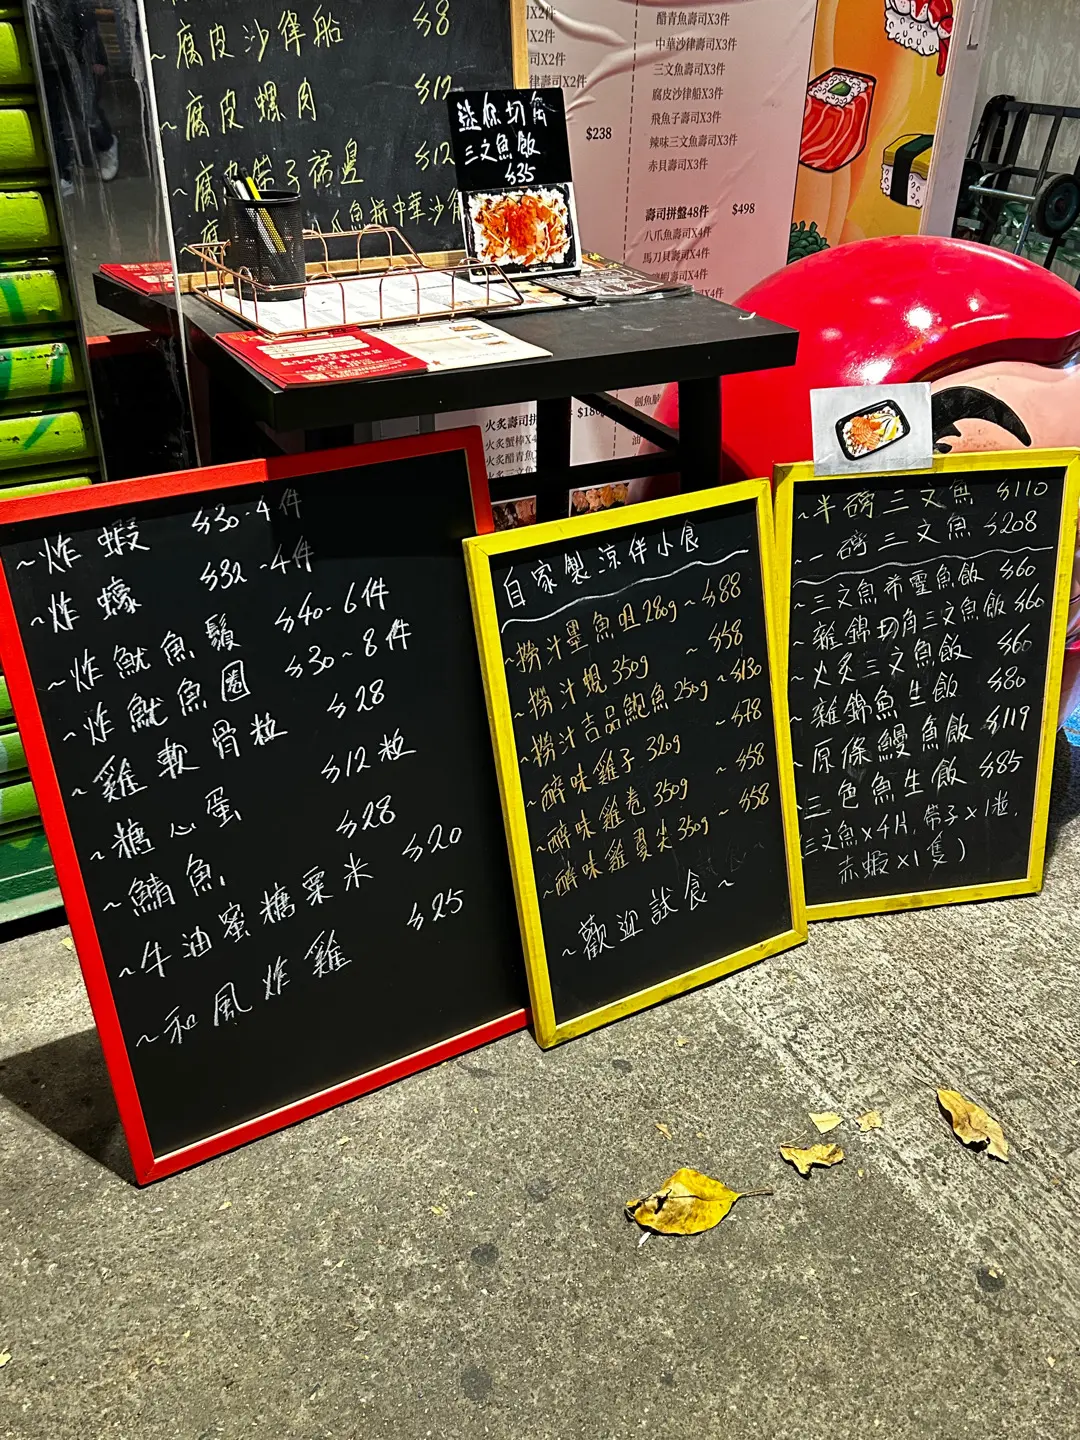 $8
~腐皮沙律船
$12
~腐皮螺肉
$12
迷你切角
三文魚飯
$35
X2件
X2件
律壽司X2件
$238
醋青魚壽司X3件
中華沙律壽司X3件
三文魚壽司X3件
腐皮沙律船X3件
飛魚子壽司X3件
辣味三文魚壽司X3件
赤貝壽司X3件
壽司拼盤48件 $498
八爪魚壽司X4件
馬刀貝壽司X4件
壽司X4件
火炙壽司拼
件 $180
火炙蟹棒X4
火炙醋青魚
~炸蝦 $30-4件
~炸蠔 $32-4件
~炸魷魚鬚 $40-6件
~炸魷魚圈 $30~8件
~雞軟骨粒 $28
~糖心蛋 $12粒
~鯖魚 $28
~牛油蜜糖粟米 $20
~和風炸雞 $25
自家製涼伴小食
~撈汁墨魚咀 280g ~$88
~撈汁蜆 350g ~$58
~撈汁吉品鮑魚 250g ~$130
~醉味雞子 320g ~$78
~醉味雞卷 350g ~$58
~醉味雞翼尖 350g ~$58
~歡迎試食~
~半磅三文魚 $110
~一磅三文魚 $208
~三文魚希靈魚飯 $60
~雜錦切角三文魚飯 $60
~火炙三文魚飯 $60
~雜錦魚生飯 $80
~原條鰻魚飯 $119
~三色魚生飯 $85
(三文魚×4片, 帶子×1粒,
赤蝦×1隻)